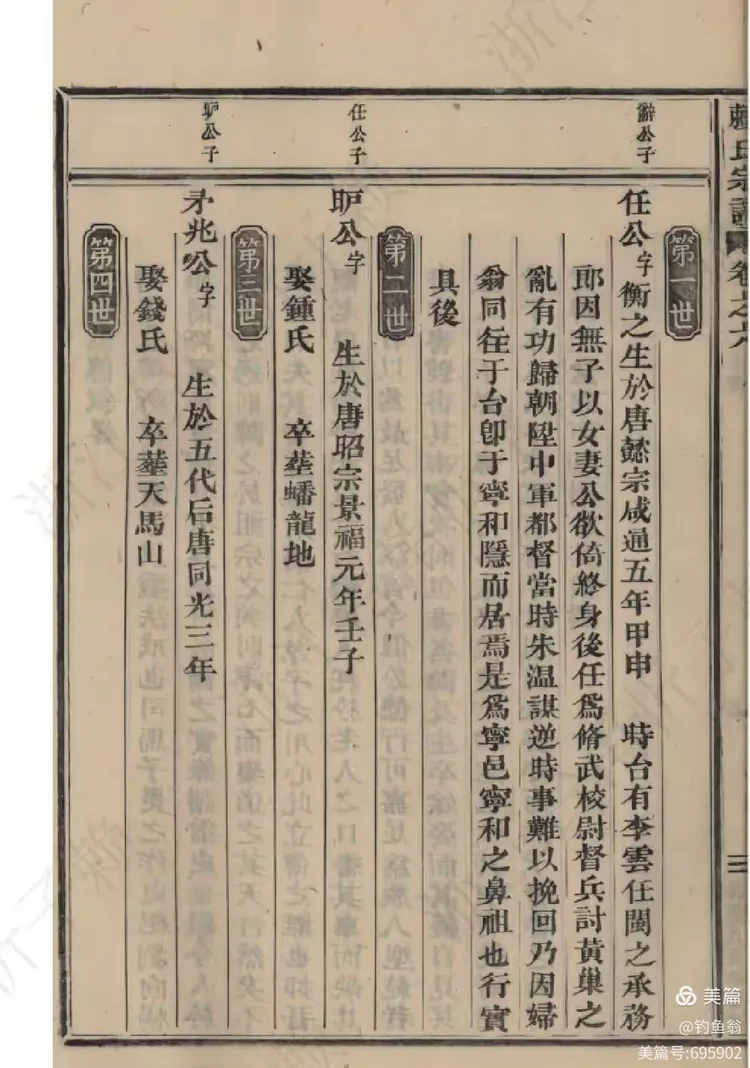 氏宗譜 卷之六 三
辭公子
第一世
任公字衡之生於唐懿宗咸通五年甲申 時台有李雲任閩之承務
郎因無子以女妻公欲倚終身後任爲脩武校尉督兵討黃巢之
亂有功歸朝陞中軍都督當時朱温謀逆時事難以挽回乃因婦
翁同往于台卽于寧和隱而居焉是爲寧邑寧和之鼻祖也行實
具後
第二世
任公子
昈公字 生於唐昭宗景福元年壬子
娶鍾氏 卒塟蟠龍地
第三世
昈公子
矛兆公字 生於五代后唐同光三年
娶錢氏 卒塟天馬山
第四世
美篇
@钓鱼翁
美篇号:695902